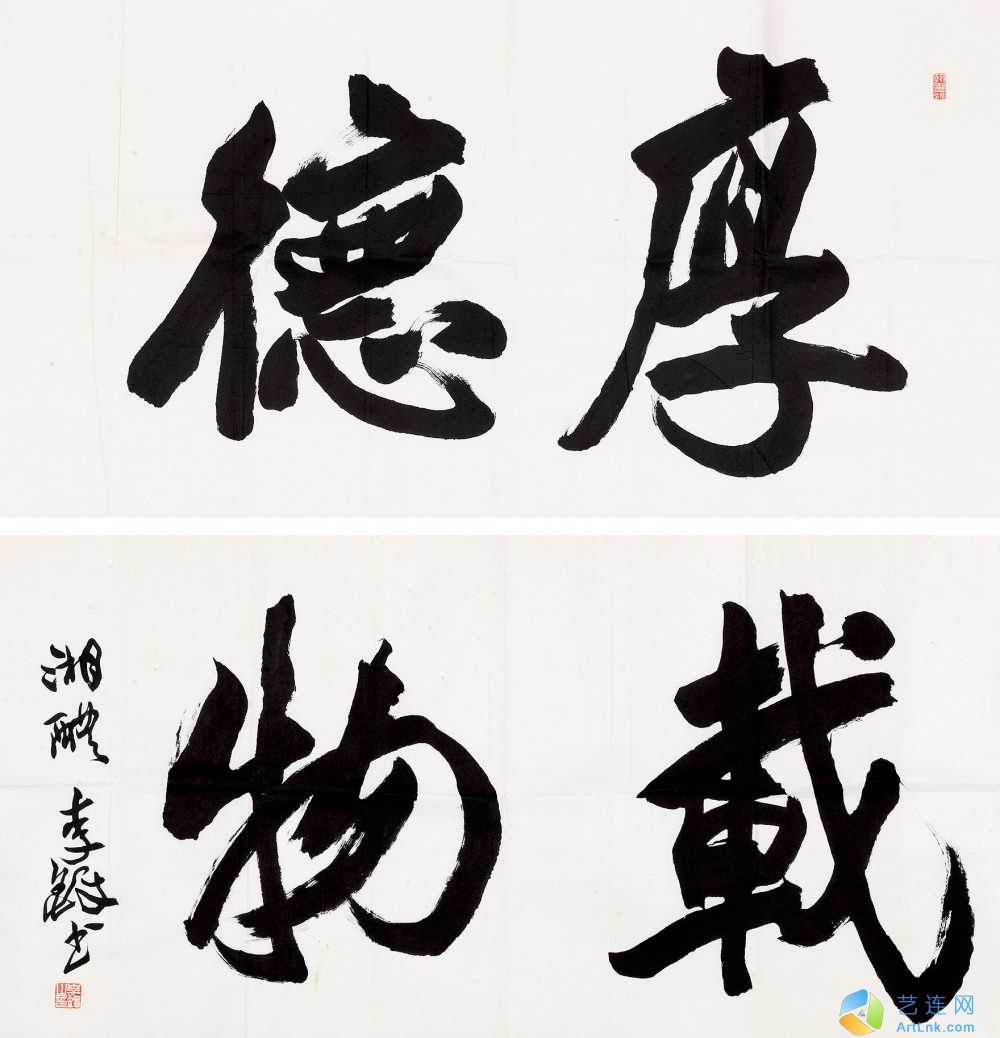 厚德
載物
湘醴
李鐸书
艺连网
ArtLnk.com